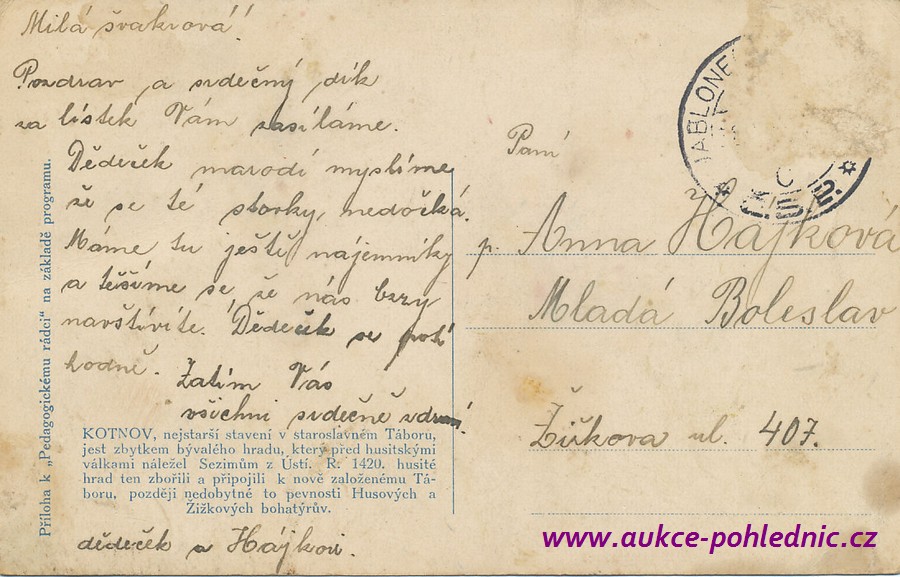 Milá švakrová!
Pozdrav a srdečný dík
za lístek Vám zasíláme.
Dědeček marodí myslíme
že se té storky nedočká.
Máme tu ještě nájemníky
a těšíme se že nás brzy
navštívíte. Dědeček se potí
hodně. Zatím Vás
všichni srdečně zdraví
dědeček a Hájkovi.
KOTNOV, nejstarší stavení v staroslavném Táboru,
jest zbytkem bývalého hradu, který před husitskými
válkami náležel Sezimům z Ústí. R. 1420. husité
hrad ten zbořili a připojili k nově založenému Tá-
boru, později nedobytné to pevnosti Husových a
Žižkových bohatýrův.
Příloha k „Pedagogickému rádci“ na základě programu.
JABLONE
Paní
p. Anna Hájková
Mladá Boleslav
Žižkova ul. 407.
www.aukce-pohlednic.cz